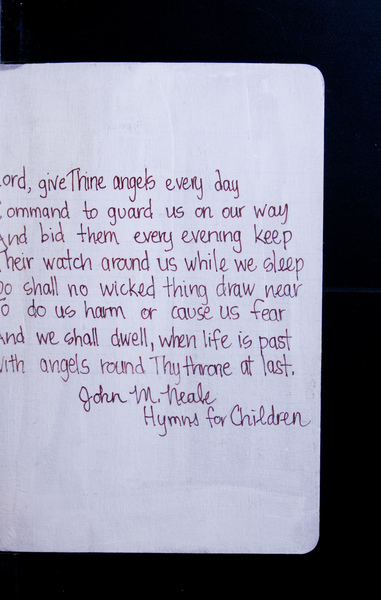 Lord, give Thine angels every day
Command to guard us on our way
And bid them every evening keep
Their watch around us while we sleep
So shall no wicked thing draw near
To do us harm or cause us fear
And we shall dwell, when life is past
With angels round Thy throne at last.
John M. Neale
Hymns for Children